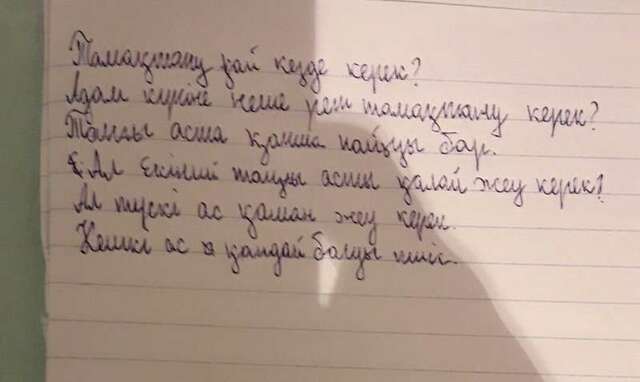 Тамақтану қай кезде керек?
Адам күніне неше рет тамақтану керек?
Таңғы аста қанша пайызы бар.
Ал екінші таңғы асты қалай жеу керек?
Ал түскі ас қашан жеу керек.
Кешкі ас қандай болуы тиіс.